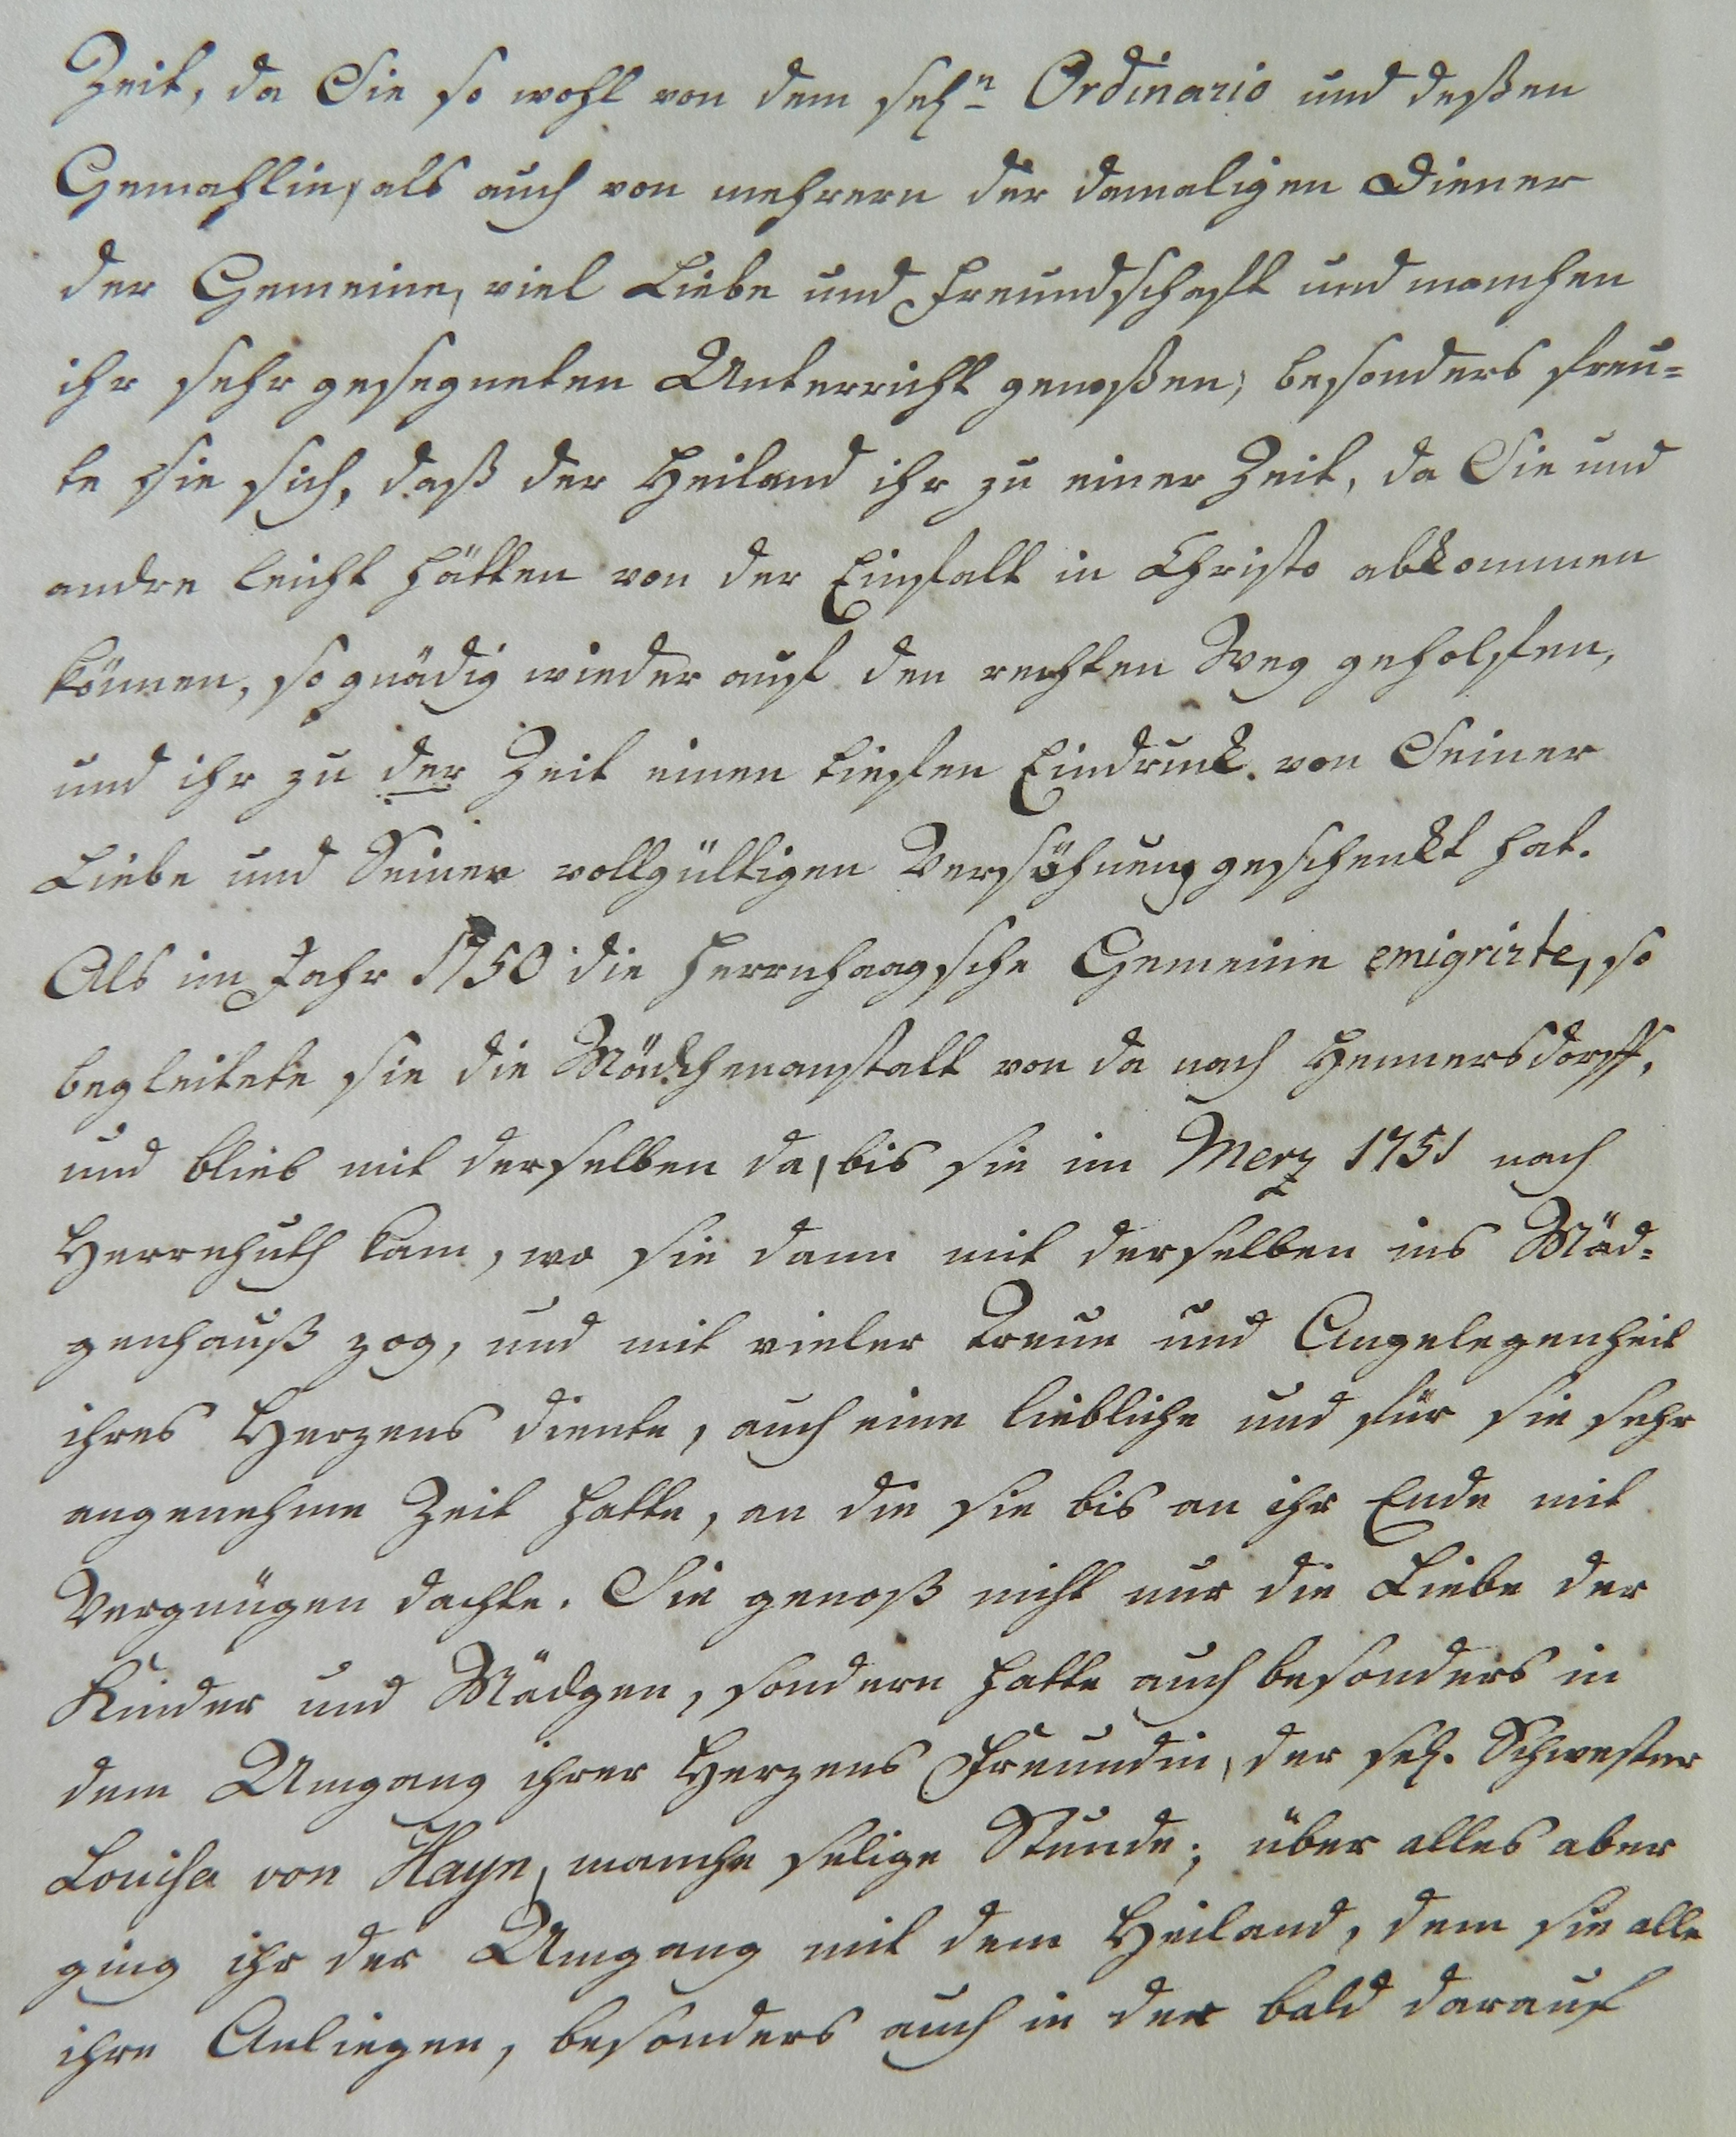 Zeit, da Sie so wohl von dem selⁿ Ordinario und deßen
Gemahlin, als auch von mehrern der damaligen Diener
der Gemeine, viel Liebe und Freundschaft und manchen
ihr sehr gesegneten Unterricht genoßen; besonders freu=
te sie sich, daß der Heiland ihr zu einer Zeit, da Sie und
andre leicht hätten von der Einfalt in Christo abkommen
können, so gnädig wieder auf den rechten Weg geholfen,
und ihr zu der Zeit einen tiefen Eindruck von Seiner
Liebe und Seiner vollgültigen Versöhnung geschenkt hat.
Als im Jahr 1750 die Herrnhaagsche Gemeine emigrirte, so
begleitete sie die Mädchenanstalt von da nach Hennersdorff,
und blieb mit derselben da, bis sie im Merz 1751 nach
Herrnhuth kam, wo sie dann mit derselben ins Mäd=
genhauß zog, und mit vieler Treue und Angelegenheit
ihres Herzens diente, auch eine liebliche und für sie sehr
angenehme Zeit hatte, an die sie bis an ihr Ende mit
Vergnügen dachte. Sie genoß nicht nur die Liebe der
Kinder und Mädgen, sondern hatte auch besonders in
dem Umgang ihrer Herzens Freundin, der sel. Schwester
Louisa von Hayn, manche selige Stunde; über alles aber
ging ihr der Umgang mit dem Heiland, dem sie alle
ihre Anliegen, besonders auch in der bald darauf